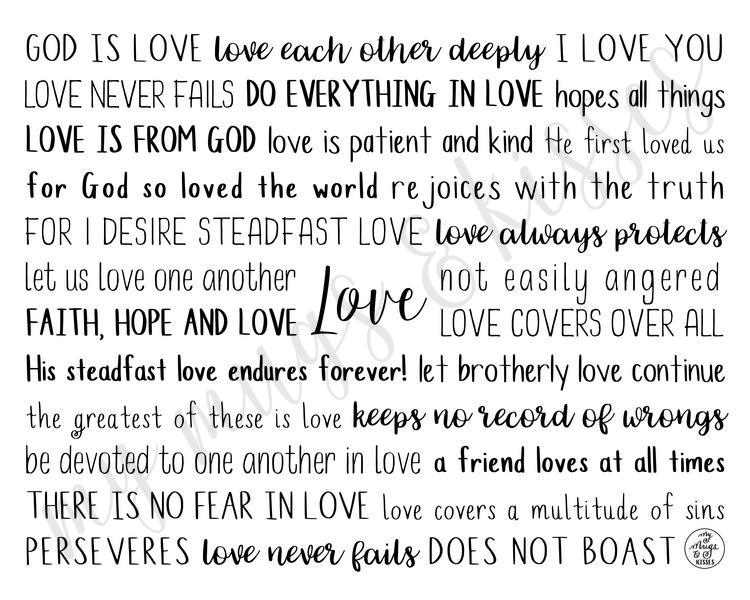 GOD IS LOVE love each other deeply I LOVE YOU
LOVE NEVER FAILS DO EVERYTHING IN LOVE hopes all things
LOVE IS FROM GOD love is patient and kind He first loved us
for God so loved the world rejoices with the truth
FOR I DESIRE STEADFAST LOVE love always protects
let us love one another
FAITH, HOPE AND LOVE
Love
not easily angered
LOVE COVERS OVER ALL
His steadfast love endures forever! let brotherly love continue
the greatest of these is love keeps no record of wrongs
be devoted to one another in love a friend loves at all times
THERE IS NO FEAR IN LOVE love covers a multitude of sins
PERSEVERES love never fails DOES NOT BOAST
my
Mugs
&
KISSES
my mugs & kisses